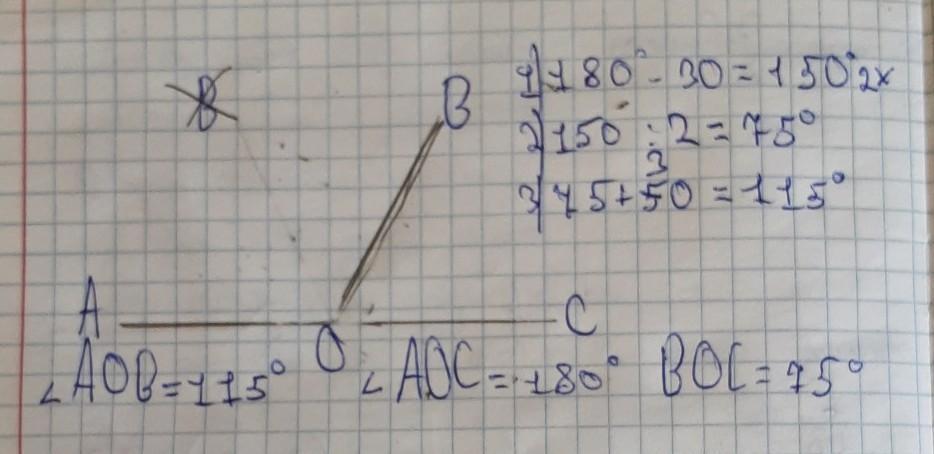 B
1) 180° - 30 = 150° 2x
2) 150 : 2 = 75°
3
3) 75 + 50 = 115°
A O C
∠AOB = 115° ∠AOC = 180° BOC = 75°